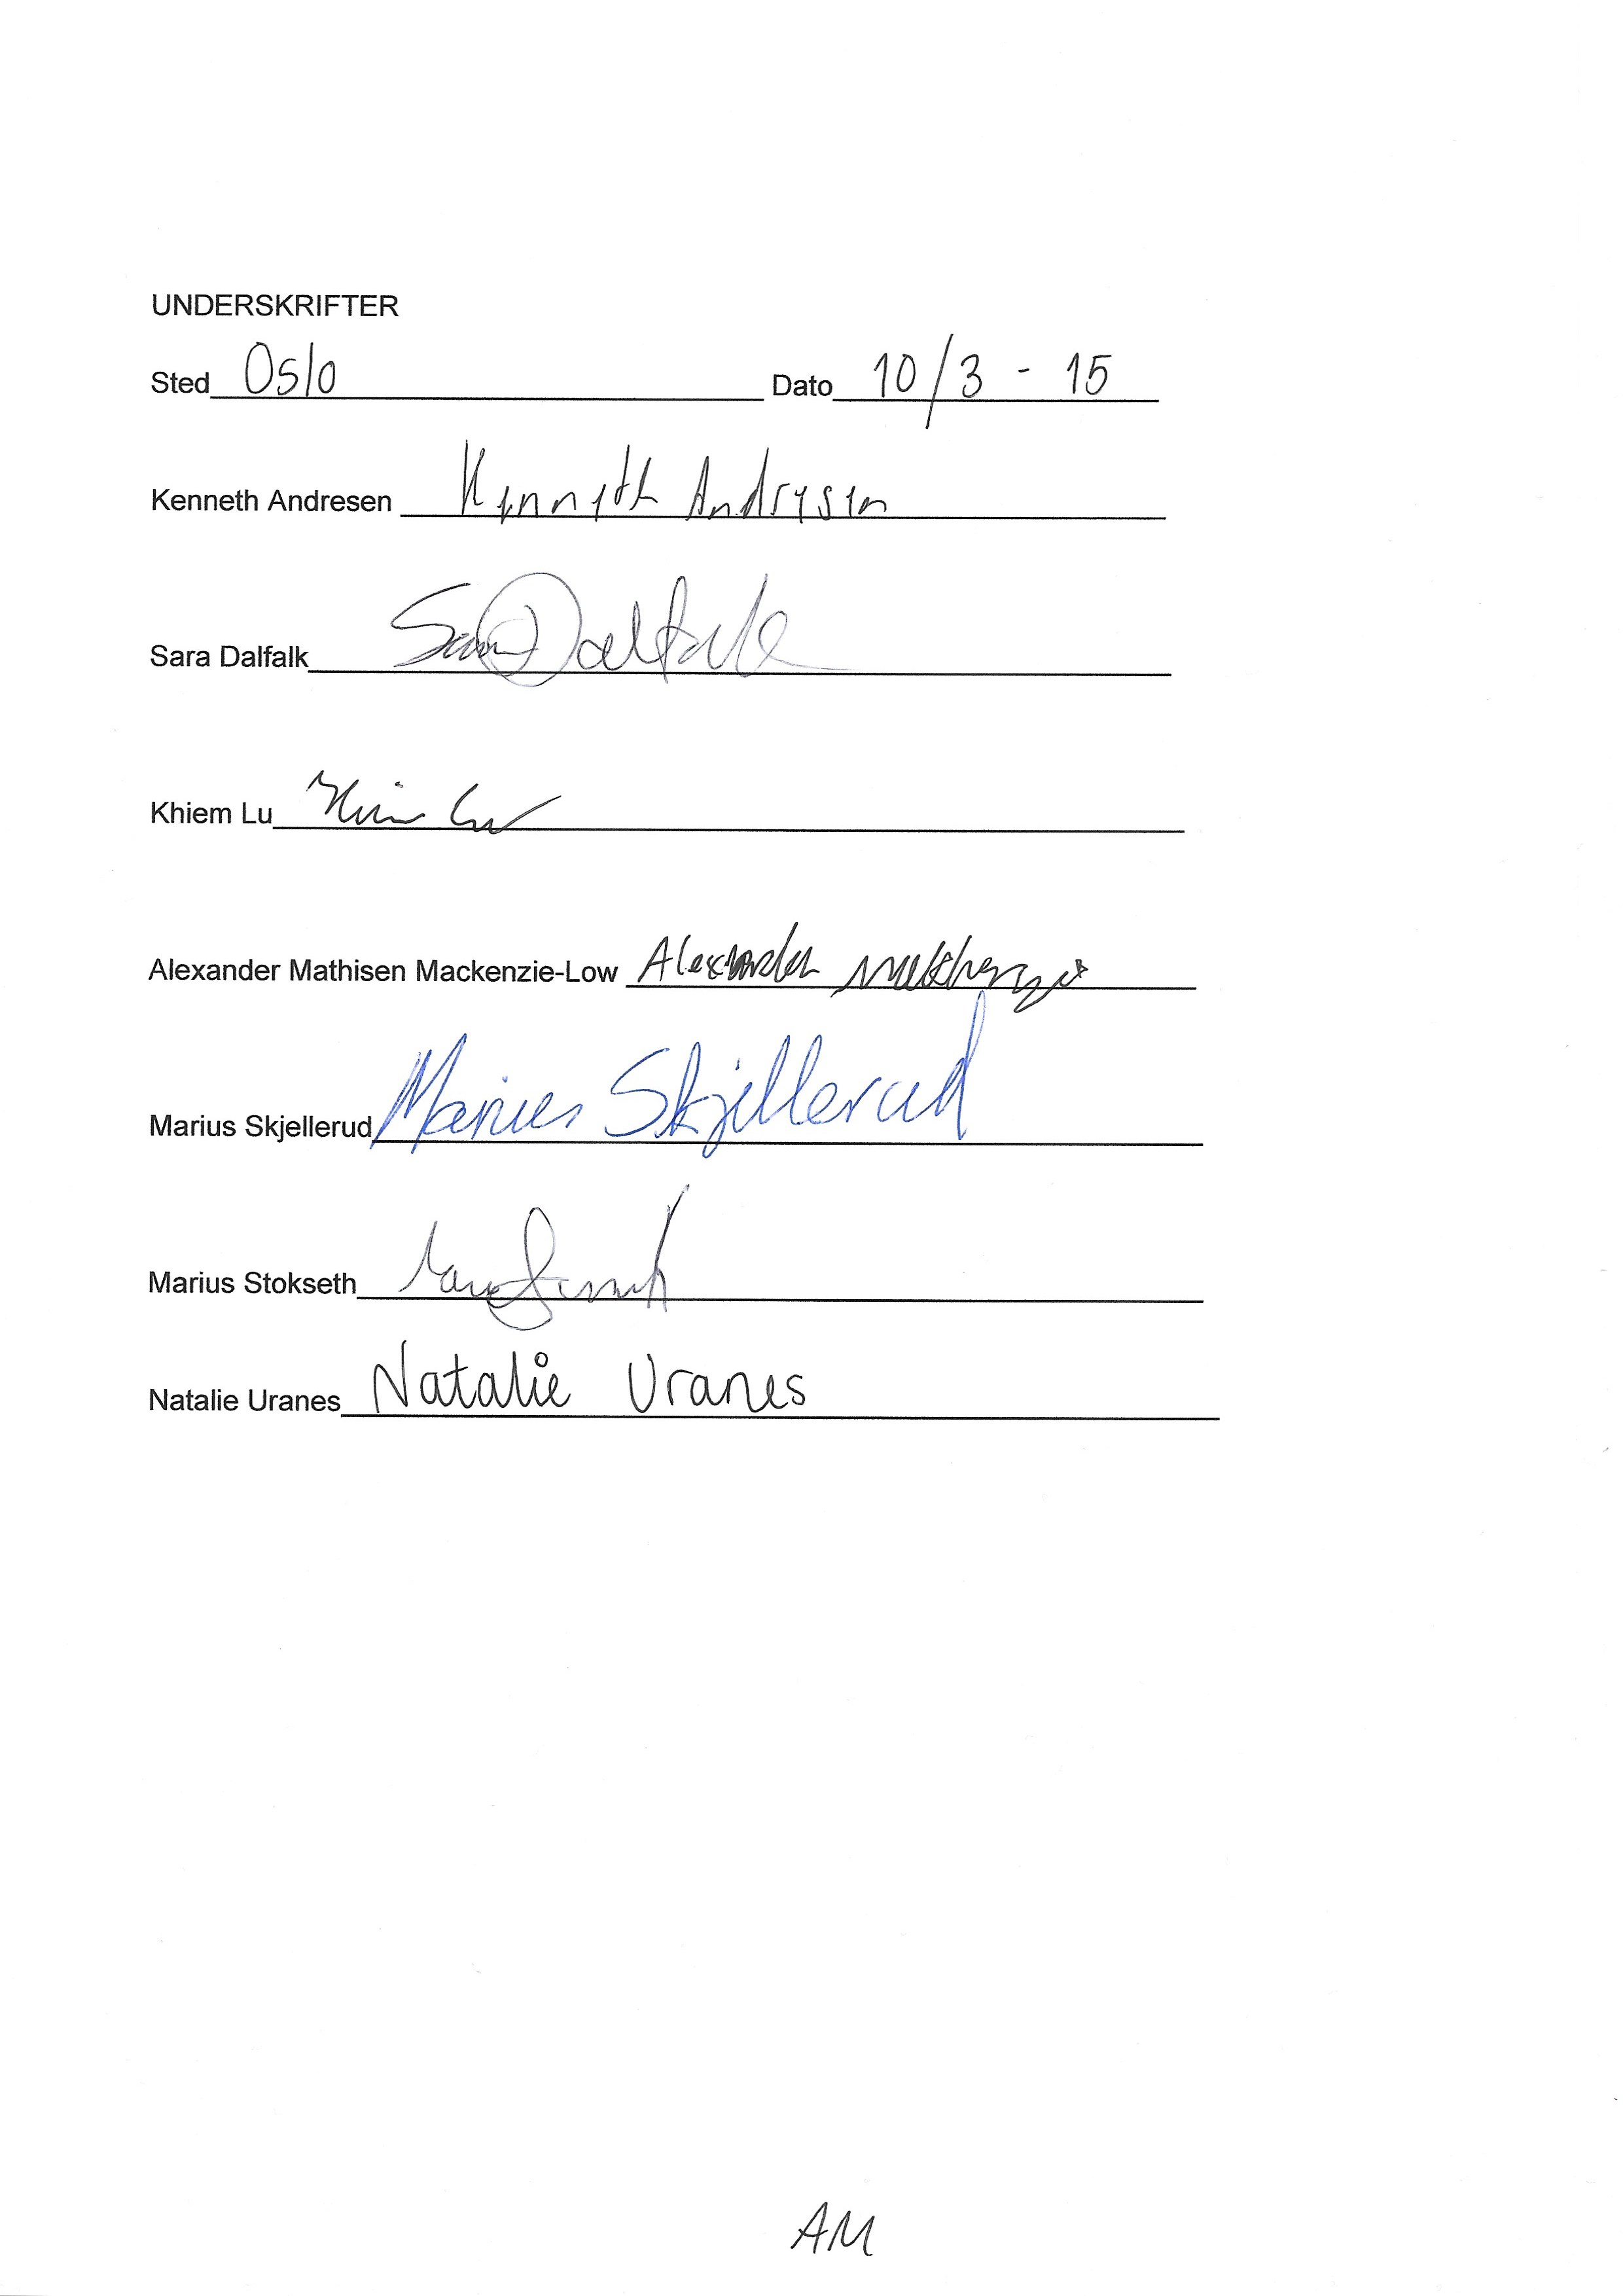 UNDERSKRIFTER
Sted Oslo Dato 10/3 - 15
Kenneth Andresen Kenneth Andresen
Sara Dalfalk Sara Dalfalk
Khiem Lu Khiem Lu
Alexander Mathisen Mackenzie-Low Alexander
Marius Skjellerud Marius Skjellerud
Marius Stokseth
Natalie Uranes Natalie Uranes
AM